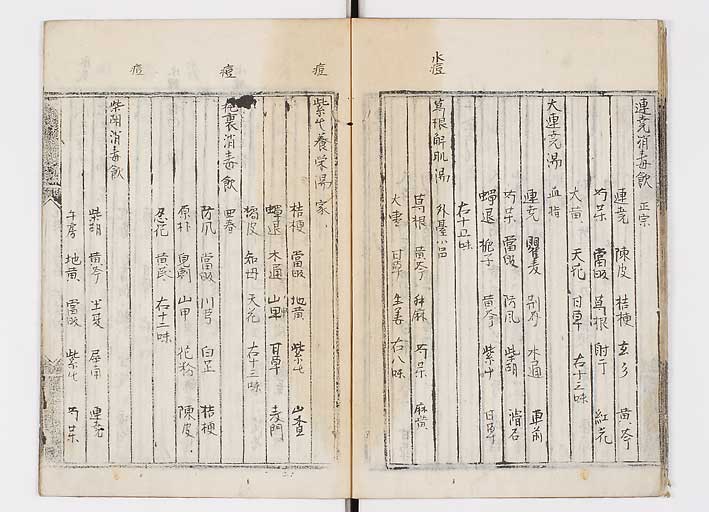 連翹消毒飲 正宗
連翹 陳皮 桔梗 玄参 黄芩
芍薬 當皈 葛根 射干 紅花
大黄 天花 甘草 右十三味
大連翹湯 血指
連翹 瞿麦 荊芥 木通 車前
芍薬 當皈 防风 柴胡 滑石
蝉退 梔子 黄芩 紫草 甘草
右十五味
水痘
葛根解肌湯 外臺
葛根 黄芩 麻黄 芍薬
大棗 甘草 生姜 右八味
痘
紫草養栄湯 家
桔梗 當皈 地黄 紫草 山査
蝉退 木通 山甲 甘草 麦門
橘皮 知母 天花 右十三味
痘
托裏消毒飲 回春
防风 當皈 川芎 白芷 桔梗
厚朴 皂刺 山甲 陳皮
忍花 黄芪 右十二味
痘
柴胡消毒飲
柴胡 黄芩 連翹
牛房 地黄 當皈 紫草 芍薬